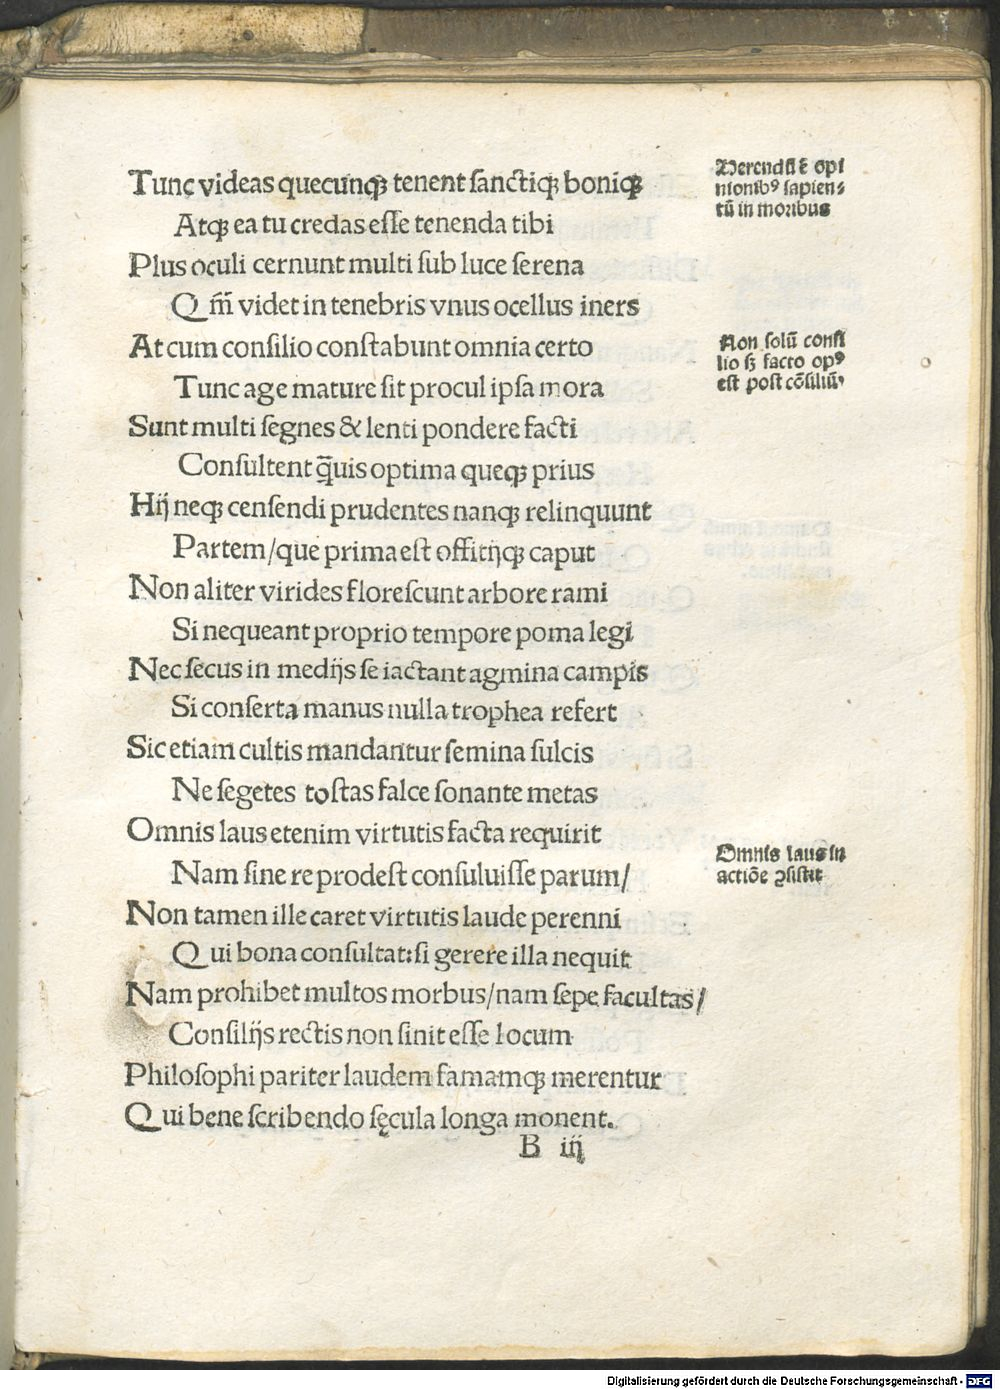 Tunc videas quecunqꝫ tenent ſanctiqꝫ boniqꝫ
Atqꝫ ea tu credas eſſe tenenda tibi
Plus oculi cernunt multi ſub luce ſerena
Qm̄ videt in tenebris vnus ocellus iners
At cum conſilio conſtabunt omnia certo
Tunc age mature ſit procul ipſa mora
Sunt multi ſegnes & lenti pondere facti
Conſultent q̄uis optima queqꝫ prius
Hij neqꝫ cenſendi prudentes nanqꝫ relinquunt
Partem/que prima eſt offitijqꝫ caput
Non aliter virides floreſcunt arbore rami
Si nequeant proprio tempore poma legi
Nec ſecus in medijs ſe iactant agmina campis
Si conſerta manus nulla trophea refert
Sic etiam cultis mandantur ſemina ſulcis
Ne ſegetes toſtas falce ſonante metas
Omnis laus etenim virtutis facta requirit
Nam ſine re prodeſt conſuluiſſe parum/
Non tamen ille caret virtutis laude perenni
Qui bona conſultat:ſi gerere illa nequit
Nam prohibet multos morbus/nam ſepe facultas/
Conſilijs rectis non ſinit eſſe locum
Philoſophi pariter laudem famamqꝫ merentur
Qui bene ſcribendo ſęcula longa monent.
B iij
Herendū ē opi
nionibꝰ ſapien⸗
tū in moribus
Non ſolū conſi
lio ſꝫ facto opꝰ
eſt poſt cōſiliū
Omnis laus in
actiōe ꝯſiſtit
Digitalisierung gefördert durch die Deutsche Forschungsgemeinschaft - DFG